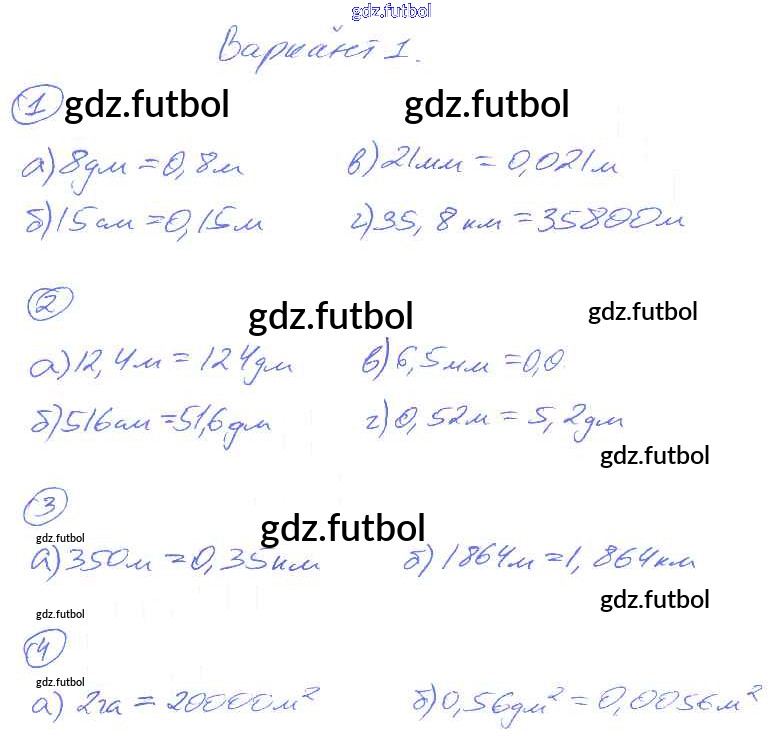 gdz.futbol
Вариант 1.
1 gdz.futbol gdz.futbol
а) 8дм = 0,8м в) 21мм = 0,021м
б) 15см = 0,15м г) 35,8км = 35800м
2 gdz.futbol gdz.futbol
а) 12,4м = 124дм в) 6,5мм = 0,0
б) 516см = 51,6дм г) 0,52м = 5,2дм
gdz.futbol
3 gdz.futbol
gdz.futbol
а) 350м = 0,35км б) 1864м = 1,864км
gdz.futbol
gdz.futbol
4
gdz.futbol
а) 2га = 20000м² б) 0,56дм² = 0,0056м²